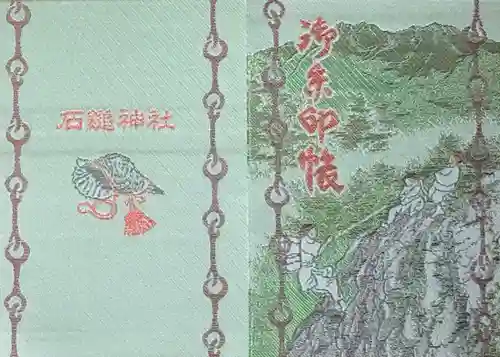 石鎚神社
御朱印帳